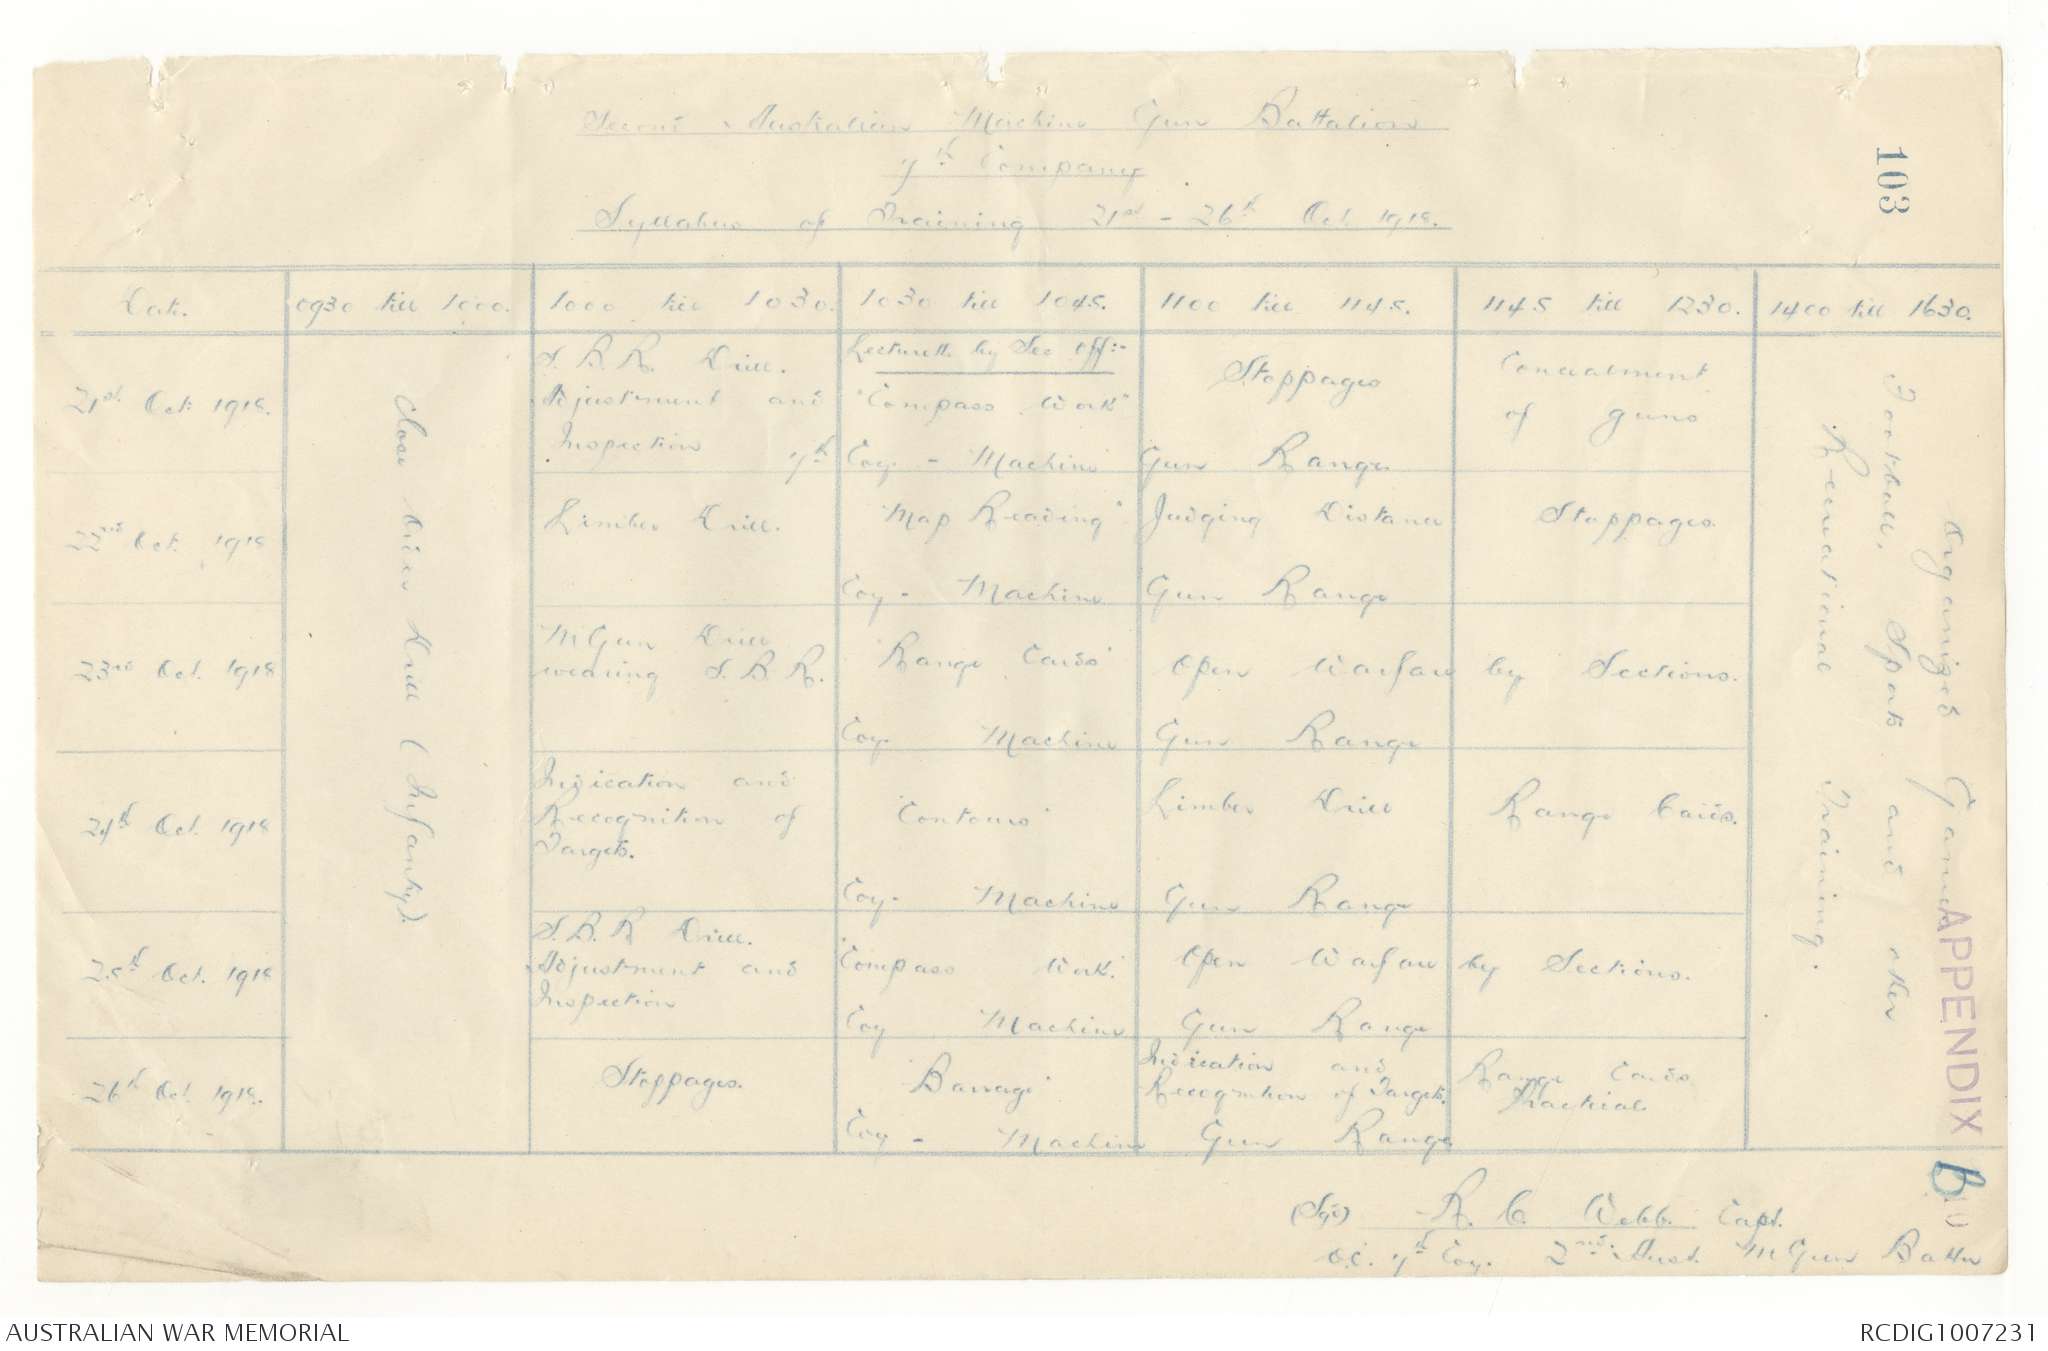 Second Australian Machine Gun Battalion
7th Company
Syllabus of Training 21st - 26th Oct. 1918.
103
Date. 0930 till 1000. 1000 till 1030. 1030 till 1045. 1100 till 1145. 1145 till 1230. 1400 till 1630.
21st Oct 1918.
Close Order Drill (Infantry).
S.B.R. Drill.
Adjustment and
Inspection
Lecturette by Sec Off:-
"Compass Work"
Stoppages
Concealment
of guns
7th Coy. - Machine Gun Range
Organized Games
Football, Sports and other
Recreational Training.
22nd Oct. 1918
Limber Drill.
"Map Reading"
Judging Distance
Stoppages.
Coy - Machine Gun Range
23rd Oct. 1918
M Gun Drill
wearing S.B.R.
"Range Cards"
Open Warfare by Sections.
Coy. Machine Gun Range
24th Oct. 1918
Indication and
Recognition of
Targets.
"Contours"
Limber Drill
Range Cards.
Coy. Machine Gun Range
25th Oct. 1918
S.B.R Drill.
Adjustment and
Inspection
"Compass Work."
Open Warfare by Sections.
Coy Machine Gun Range
26th Oct. 1918.
Stoppages.
"Barrage"
Indication and
Recognition of Targets.
Range Cards
Practical
Coy - Machine Gun Range
APPENDIX B
(Sgd) R. C. Webb. Capt.
O.C. 7th Coy. 2nd Aust. M Gun Battn
AUSTRALIAN WAR MEMORIAL
RCDIG1007231